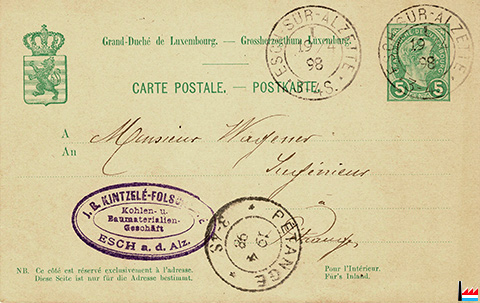 Grand-Duché de Luxembourg. — Grossherzogthum Luxemburg.
CARTE POSTALE. — POSTKARTE.
ESCH-SUR-ALZETTE
19
98
4-5S.
ESCH-SUR-ALZETTE
19
98
5 5
A
An
Monsieur Wagener
Ingénieur
à
Pétange
J. B. KINTZELÉ-FOLS
Kohlen- u.
Baumaterialien-
Geschäft
ESCH a. d. Alz.
PETANGE
19 4 98
NB. Ce côté est réservé exclusivement à l'adresse.
Diese Seite ist nur für die Adresse bestimmt.
Pour l'Intérieur.
Für's Inland.